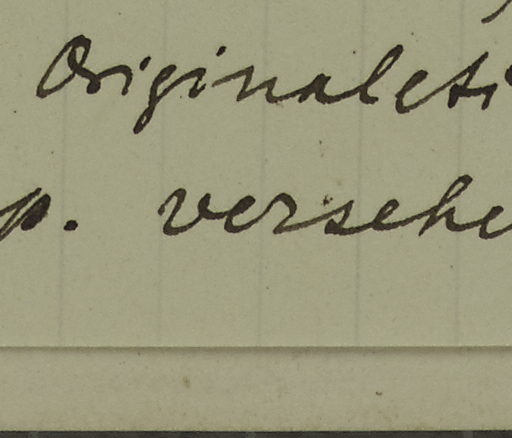 Originaleti
p. versehe